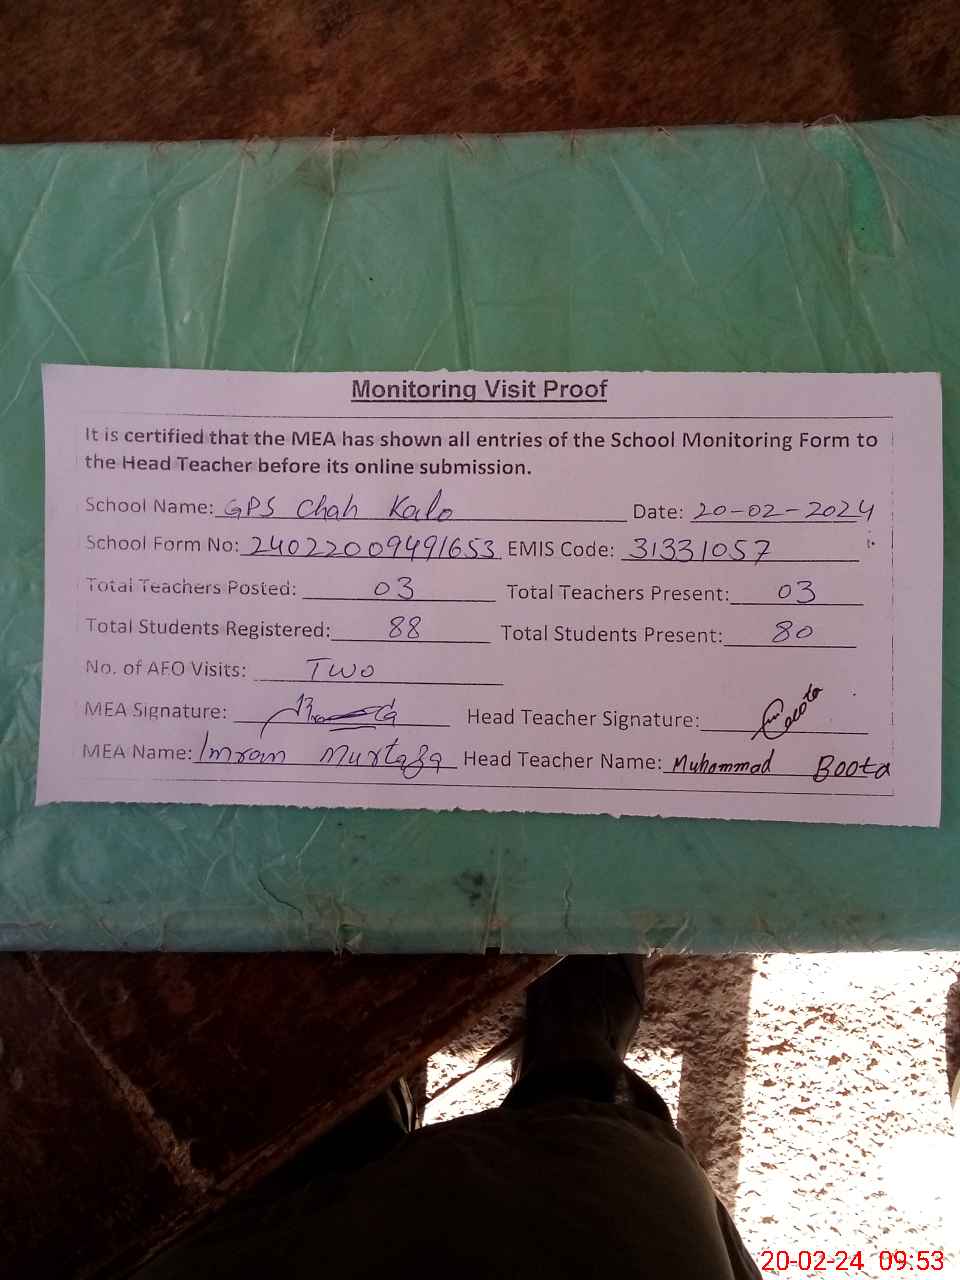 Monitoring Visit Proof
It is certified that the MEA has shown all entries of the School Monitoring Form to
the Head Teacher before its online submission.
School Name: GPS Chah Kalo Date: 20-02-2024
School Form No: 24022009491653 EMIS Code: 31331057
Total Teachers Posted: 03 Total Teachers Present: 03
Total Students Registered: 88 Total Students Present: 80
No. of AEO Visits: Two
MEA Signature: Head Teacher Signature:
MEA Name: Imran Murtaza Head Teacher Name: Muhammad Boota
20-02-24 09:53